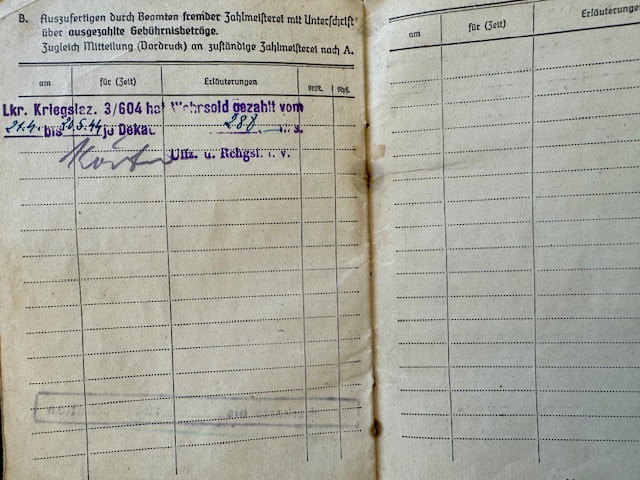 B. Auszufertigen durch Beamten fremder Zahlmeisterei mit Unterschrift
über ausgezahlte Gebührnisbeträge.
Zugleich Mitteilung (Vordruck) an zuständige Zahlmeisterei nach A.
am für (Zeit) Erläuterungen RM. Rpf.
Lkr. Kriegslaz. 3/604 hat Wehrsold gezahlt vom
21.4. bis 20.5.44 je Dekade 288
Uffz. u. Rchgsf. i. V.
am für (Zeit) Erläuterungen